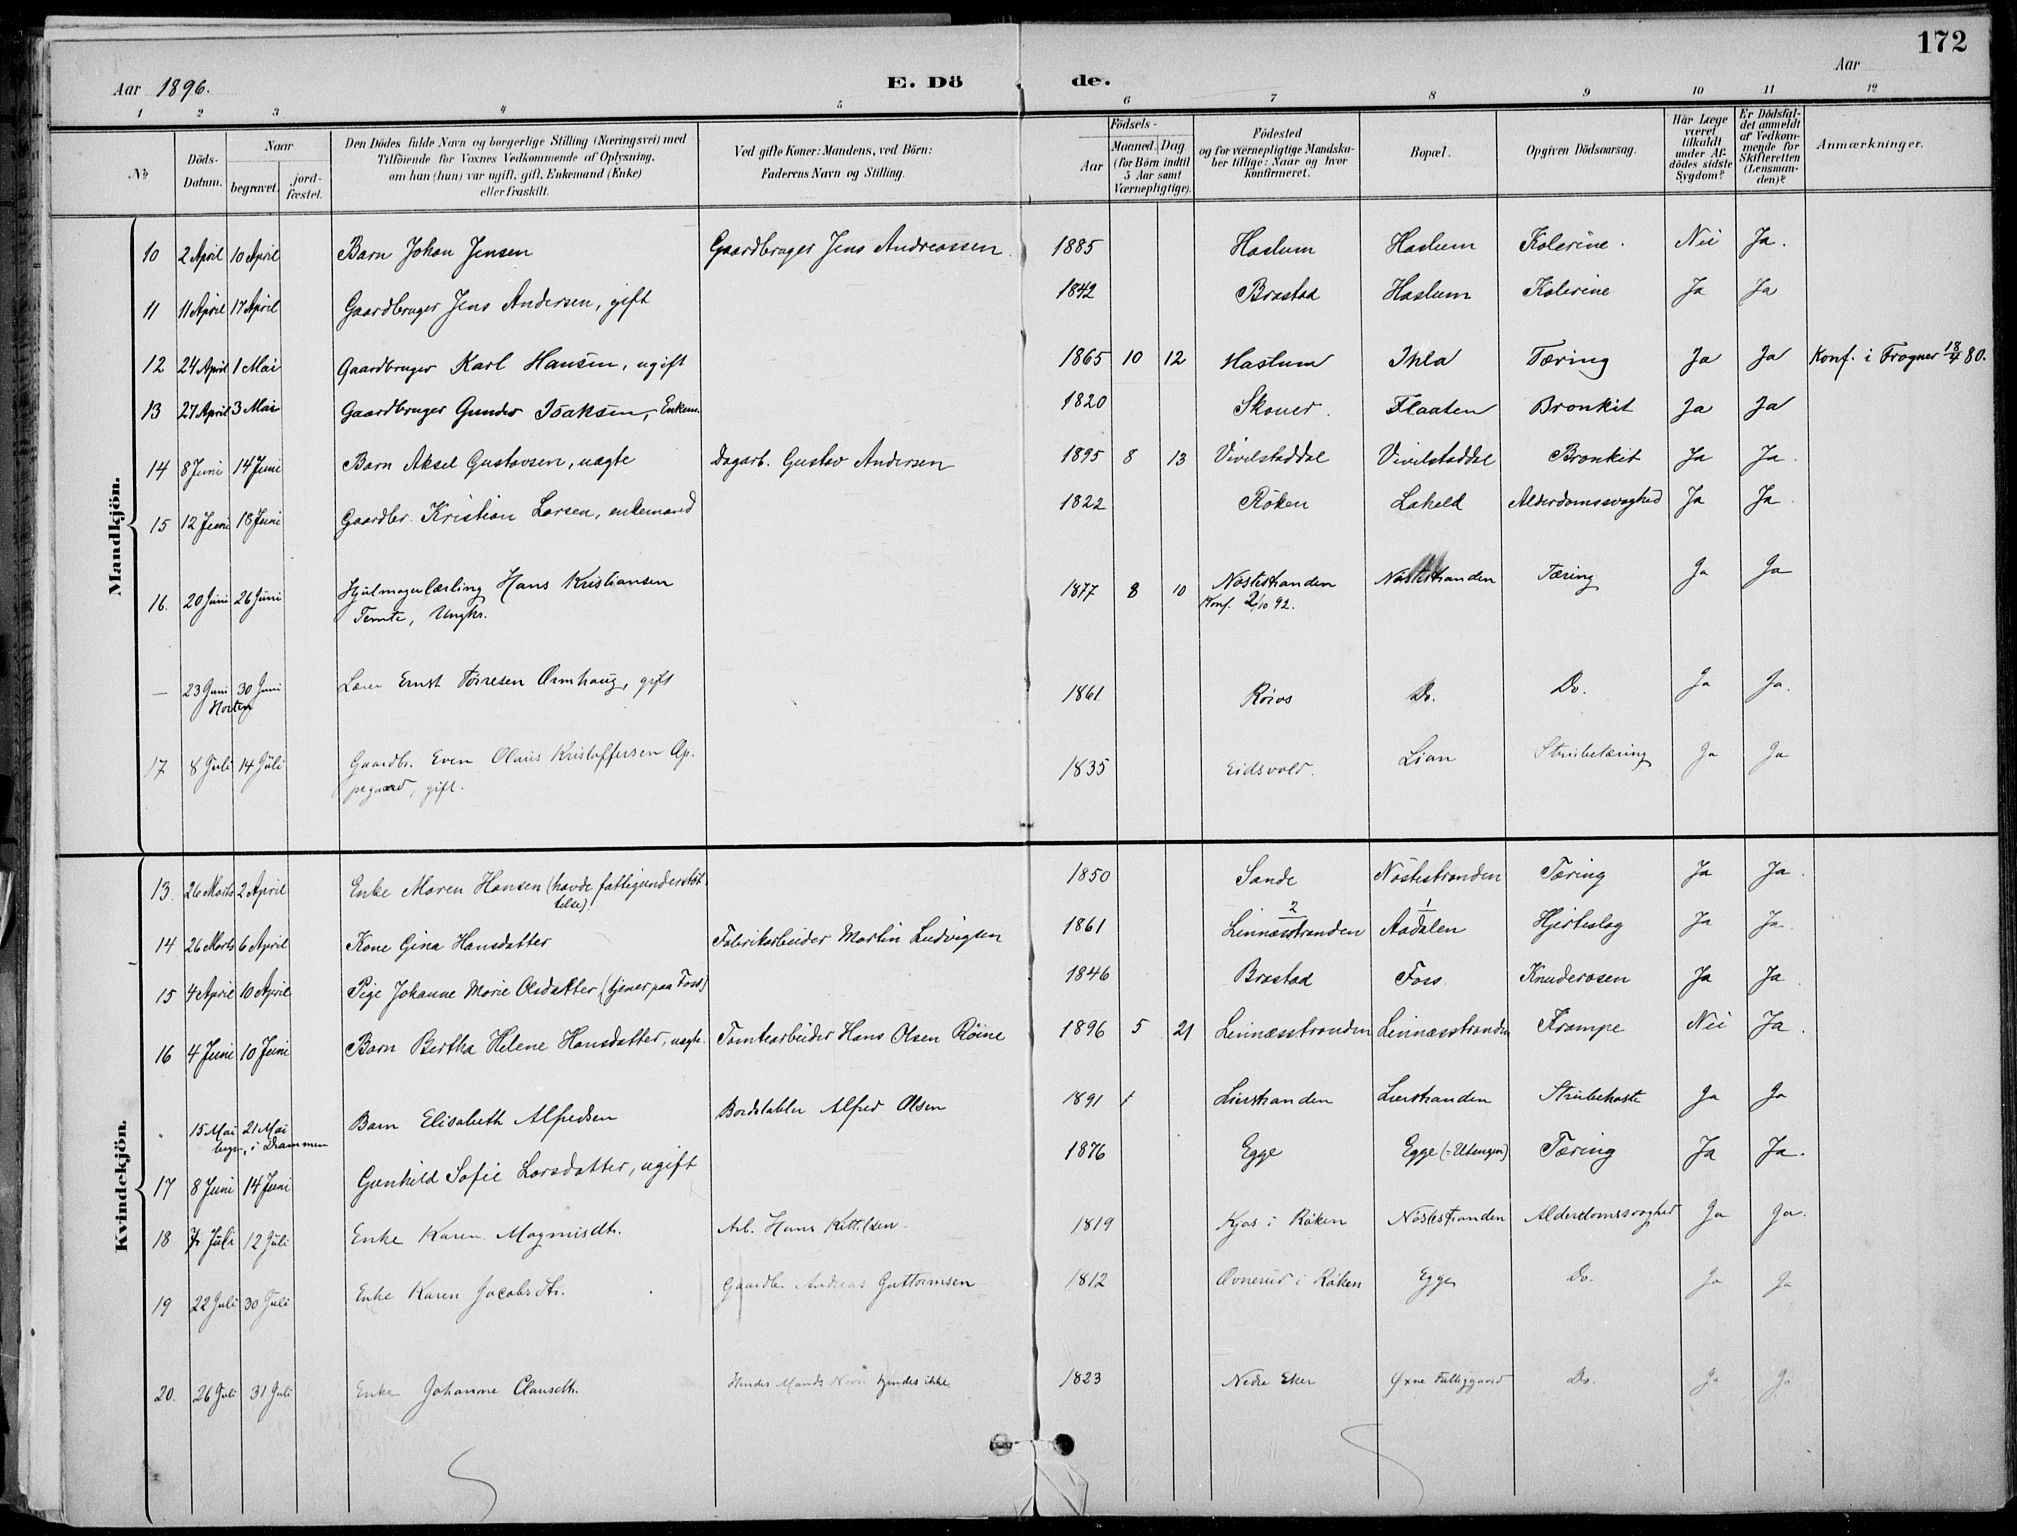 172
Aar 1896. E. Dö de. Aar
1 2 3 4 5 6 7 8 9 10 11 12
No Döds-Datum. Naar begravet. jordfæstet. Den Dödes fulde Navn og borgerlige Stilling (Næringsvei) med Tilföiende for Voxnes Vedkommende af Oplysning, om han (hun) var ugift, gift, Enkemand (Enke) eller fraskilt. Ved gifte Koner: Mandens, ved Börn: Faderens Navn og Stilling. Aar Födsels- Maaned. Dag (for Börn indtil 5 Aar samt Værnepligtige). Födested og for værnepligtige Mandskaber tillige: Naar og hvor Konfirmeret. Bopæl. Opgiven Dödsaarsag. Har Læge været tilkaldt under Afdödes sidste Sygdom? Er Dödsfaldet anmeldt af Vedkommende for Skifteretten (Lensmanden)? Anmærkninger.
Mandkjön.
10 2 April 10 April Barn Johan Jensen Gaardbruger Jens Andreassen. 1885 Haslum Haslum Kolerine. Nei Ja.
11 11 April 17 April Gaardbruger Jens Andersen, gift 1842 Brastad Haslum Kolerine Ja Ja
12 24 April 1 Mai Gaardbruger Karl Hansen, ugift 1865 10 12 Haslum Ihla Tæring Ja Ja Konf. i Frogner 18/4 80.
13 27 April 3 Mai Gaardbruger Gunder Isaksen, Enkem. 1820 Skouer. Flaaten Bronkit Ja Ja
14 8 Juni 14 Juni Barn Aksel Gustavsen, uægte Dagarb. Gustav Andersen 1895 8 13 Vivelstaddal Vivelstaddal Bronkit Ja Ja.
15 12 Juni 18 Juni Gaardbr. Kristian Larsen, enkemand 1822 Röken Laheld Alderdomssvaghed Ja Ja
16. 20 Juni 26 Juni Hjulmagerlærling Hans Kristiansen 1877 8 10 Nøstestranden Nøstestranden Tæring Ja Ja
Temte, Ungkr. Konf. 2/10 92.
— 23 Juni 30 Juni Lærer Ernst Tørresen Ormhaug, gift 1861 Røros Do. Do. Ja Ja.
Horten
17 8 Juli 14 Juli Gaardbr. Even Olaus Kristoffersen Op- 1835 Eidsvold. Lian Strubetæring Ja Ja
pegaard, gift.
Kvindekjön.
13. 26 Marts 2 April Enke Maren Hansen (havde fattigunderstöt- 1850 Sande Nöstestranden Tæring Ja Ja.
telse).
14 26 Marts 6 April Kone Gina Hansdatter Fabrikarbeider Martin Ludvigsen 1861 2 Linnæsstranden 1 Aadalen Hjerteslag Ja Ja.
15 4 April 10 April Pige Johanne Marie Olsdatter (tjener paa Foss) 1846 Brastad Foss Knuderosen Ja Ja.
16 4 Juni 10 Juni Barn Bertha Helene Hansdatter, uægte. Tomtearbeider Hans Olsen Röine 1896 5 21 Linnæsstranden Linnæsstranden Krampe Nei Ja.
" 15 Mai 21 Mai Barn Elisabeth Alfredsen Bordstabler Alfred Olsen 1891 1 Lierstranden Lierstranden Strubehoste Ja Ja
begr. i Drammen
17 8 Juni 14 Juni Gunhild Sofie Larsdatter, ugift 1876 Egge Egge (Utengen) Tæring Ja Ja.
18 7 Juli 12 Juli Enke Karen Magnusdtr. Arb. Hans Kittilsen 1819 Kjos i Røken Nøstestranden Alderdomssvaghed Ja Ja.
19 22 Juli 30 Juli Enke Karen Jacobsdtr. Gaardbr Andreas Guttormsen 1812 Ovnerud i Røken Egge Do. Ja Ja
20. 26 Juli 31 Juli Enke Johanne Clausdtr. Hendes Mands Navn kjendes ikke. 1823 Nedre Eker Øxne Fattiggaard Do. Ja Ja